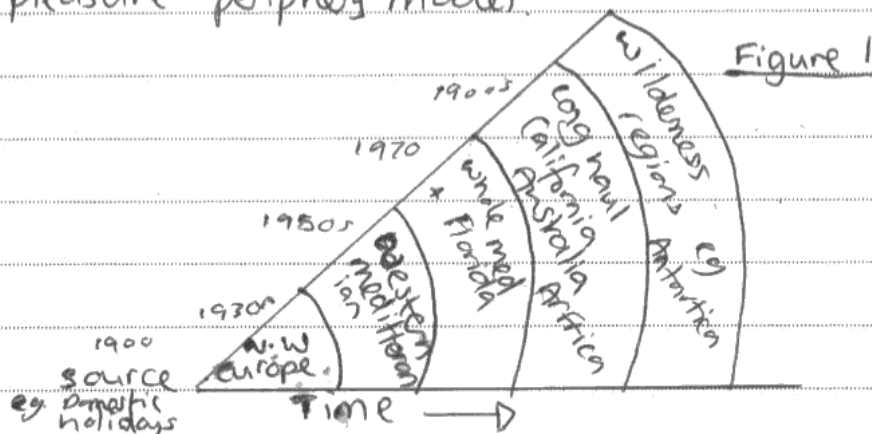 pleasure periphery model.
Figure 1
1900s
1970
1950s
1930s
1900
source
eg. Domestic
holidays
N.W
Europe.
western
meditteran
ian
whole med
+ Florida
Long haul
California
Australia
Affrica
Wilderness
regions eg
Antartica
Time